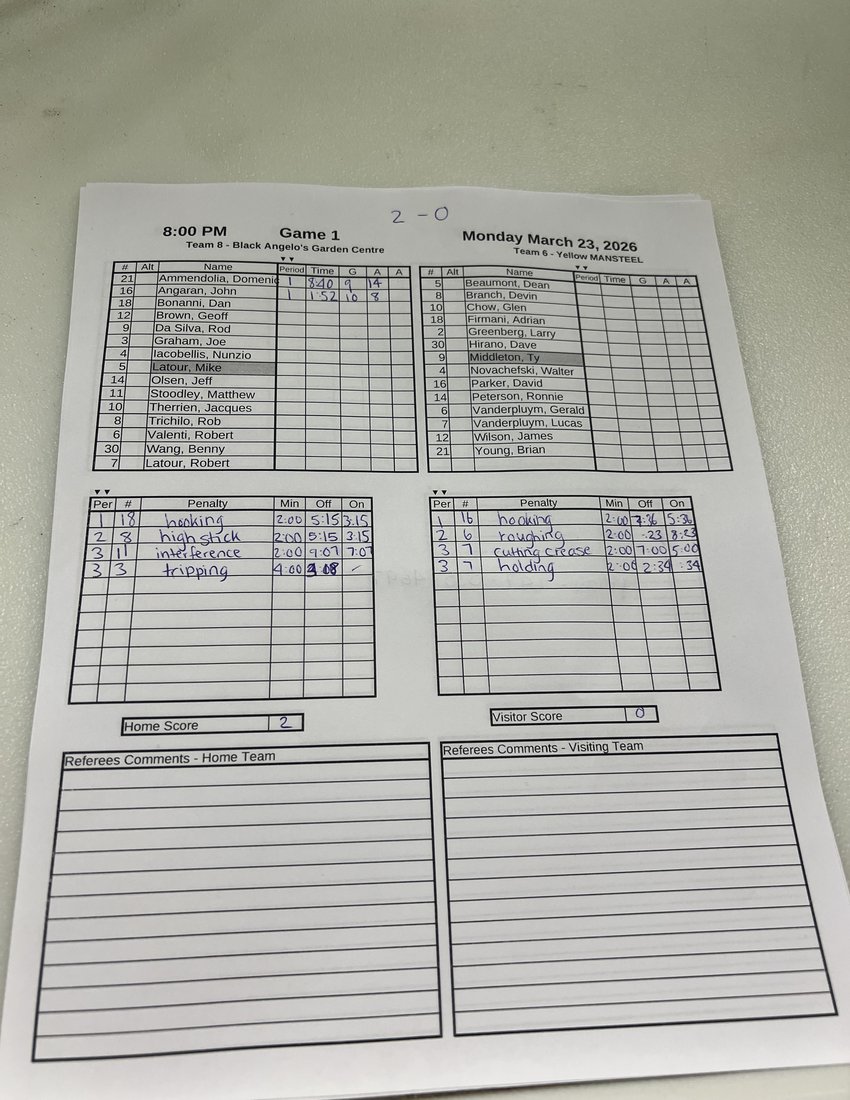 2 - 0
8:00 PM Game 1 Monday March 23, 2026
Team 8 - Black Angelo's Garden Centre
Team 6 - Yellow MANSTEEL
# Alt Name Period Time G A A
21 Ammendolia, Domenic 1 8:40 9 14
16 Angaran, John 1 1:52 10 8
18 Bonanni, Dan
12 Brown, Geoff
9 Da Silva, Rod
3 Graham, Joe
4 Iacobellis, Nunzio
5 Latour, Mike
14 Olsen, Jeff
11 Stoodley, Matthew
10 Therrien, Jacques
8 Trichilo, Rob
6 Valenti, Robert
30 Wang, Benny
7 Latour, Robert
# Alt Name Period Time G A A
5 Beaumont, Dean
8 Branch, Devin
10 Chow, Glen
18 Firmani, Adrian
2 Greenberg, Larry
30 Hirano, Dave
9 Middleton, Ty
4 Novachefski, Walter
16 Parker, David
14 Peterson, Ronnie
6 Vanderpluym, Gerald
7 Vanderpluym, Lucas
12 Wilson, James
21 Young, Brian
Per # Penalty Min Off On
1 18 hooking 2:00 5:15 3:15
2 8 high stick 2:00 5:15 3:15
3 11 interference 2:00 9:07 7:07
3 3 tripping 4:00 :08
Per # Penalty Min Off On
1 16 hooking 2:00 7:36 5:36
2 6 roughing 2:00 :23 8:23
3 7 cutting crease 2:00 7:00 5:00
3 7 holding 2:00 2:34 :34
Home Score 2
Visitor Score 0
Referees Comments - Home Team
Referees Comments - Visiting Team